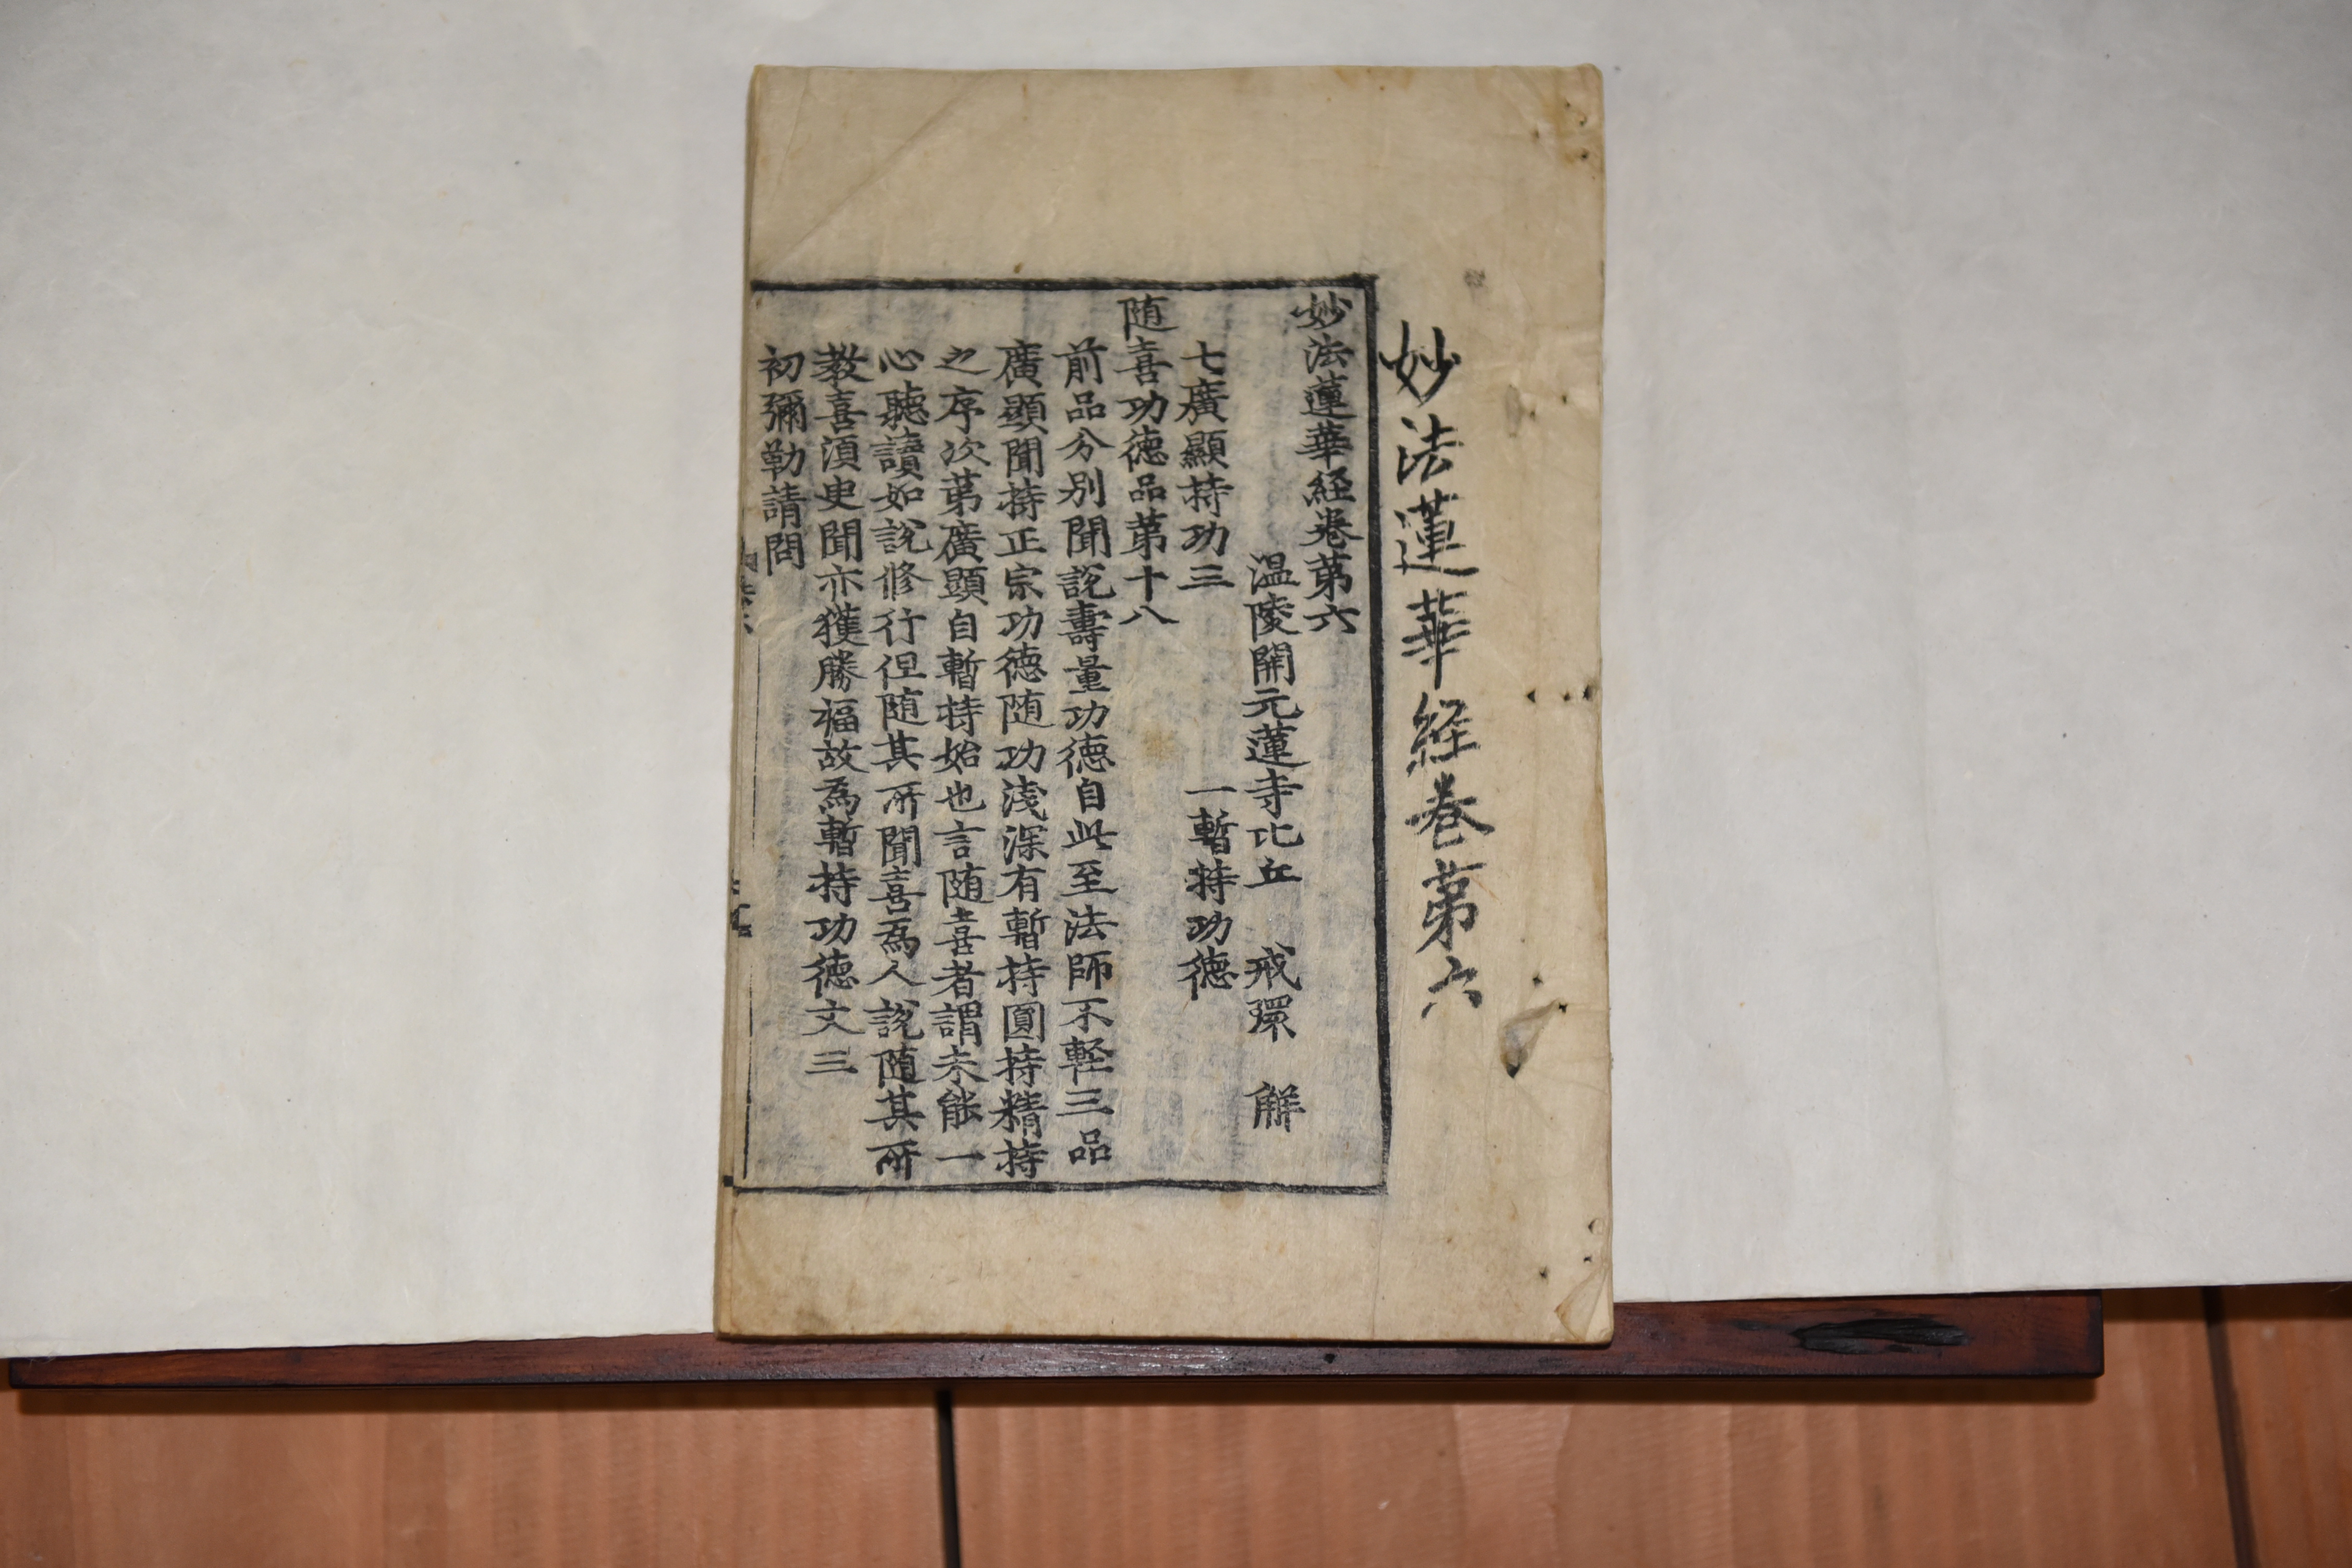 妙法蓮華経卷第六
妙法蓮華経卷第六
温陵開元蓮寺比丘 戒環 解
七廣顯持功三 一暫持功德
随喜功德品第十八
前品分別聞說壽量功德自此至法師不軽三品
廣顕聞持正宗功德随功淺深有暫持圓持精持
之序次第廣顕自暫持始也言随喜者謂未能一
心聽讀如說修行但随其所聞喜為人說随其所
教喜湏臾聞亦獲勝福故為暫持功德文三
初彌勒請問